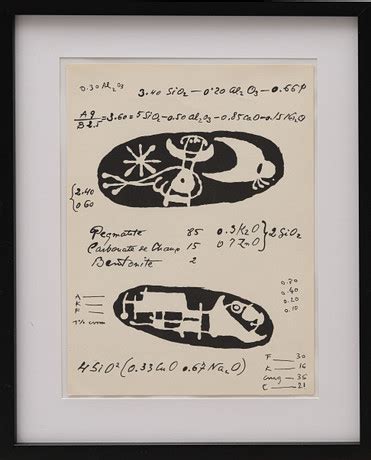 0.30 Al₂O₃
3.40 SiO₂ — 0.20 Al₂O₃ — 0.66 P
A 9 / B 2.5 = 3.60 = 5 SiO₂ — 0.50 Al₂O₃ — 0.85 CaO — 0.15 Na₂O
{ 2.40
0.60
Pegmatite 85 0.3 K₂O } 2 SiO₂
Carbonate de Chaux 15 0.7 ZnO
Bentonite 2
0.70
0.40
0.20
0.10
A —
K —
F —
4 SiO² (0.33 CuO 0.67 Na₂O)
F — 30
K — 16
36
C — 21